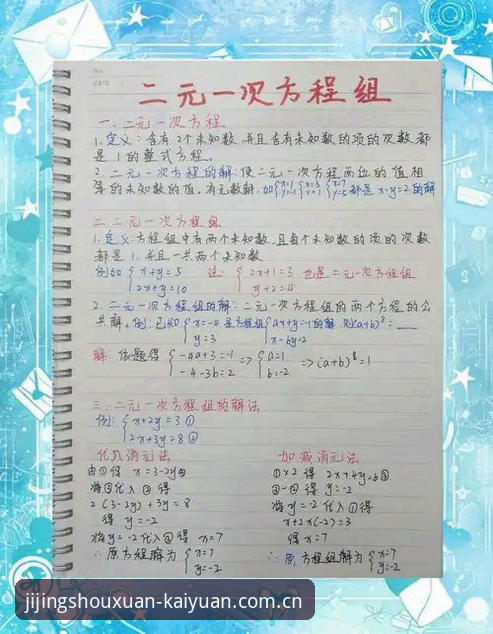 No
DATE
二元一次方程组
一.二元一次方程
1.定义:含有2个未知数,并且含有未知数的项的次数都
是1的整式方程。
2.二元一次方程的解:使二元一次方程两边的值相
等的未知数的值,有无数解,如{x=1 y=-1 {x=3 y=1 {x=7 y=5 都是x-y=2的解
二.二元一次方程组
1.定义:方程组中有两个未知数,且每个未知数的项的次数
都是1,并且一共两个未知数
例如{x+y=5 注:{2x+1=3 也是二元一次方程组
2x+y=10 y+2=4
2.二元一次方程组的解:二元一次方程组的两个方程的公
共解。例:已知{x=-4 是方程组{ax+y=-1的解,则(a+b)⁸=___
y=3 x-by=-2
解:依题得{-4a+3=-1 => {a=1 => (a+b)⁸=1
-4-3b=2 b=-2
三.二元一次方程组的解法
例:{x+2y=3 ①
2x+3y=8 ②
代入消元法
由①得 x=3-2y③
将③代入②得
2(3-2y)+3y=8
得 y=-2
将y=-2代入③得 x=7
∴原方程解为{x=7
y=-2
加减消元法
①×2 得 2x+4y=6③
③-②得 y=-2
将y=-2代入①得
x+2×(-2)=3
得x=7
∴原方程组解为{x=7
y=-2
jijingshouxuan-kaiyuan.com.cn